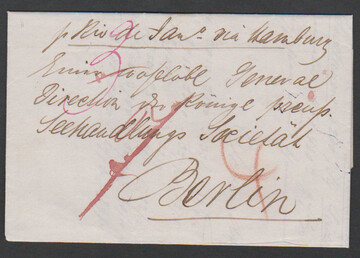 p Rio de Jan° via Hamburg
Eine General
Direction der Königl preuß.
Seehandlungs Societät
Berlin